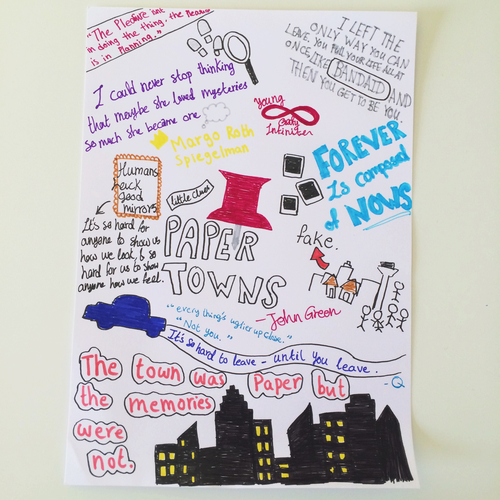 "The Pleasure isnt
in doing the thing, the Pleasure
is in Planning."
I LEFT THE
ONLY WAY YOU CAN
LEAVE YOU PULL YOUR LIFE ALL AT
ONCE LIKE BANDAID AND
THEN YOU GET TO BE YOU.
I could never stop thinking
that maybe she loved mysteries
so much she became one
Margo Roth
Spiegelman
Young
Infiniter
FOREVER
Is composed
of NOWS
Humans
good
mirrors
It's so hard for
anyone to show us
how we look, & so
hard for us to show
anyone how we feel.
Little Clues
PAPER
TOWNS
fake.
- John Green
"everything's uglier up close."
"Not you."
It's so hard to leave - until you leave.
-Q
The town was Paper but
the memories
were
not.